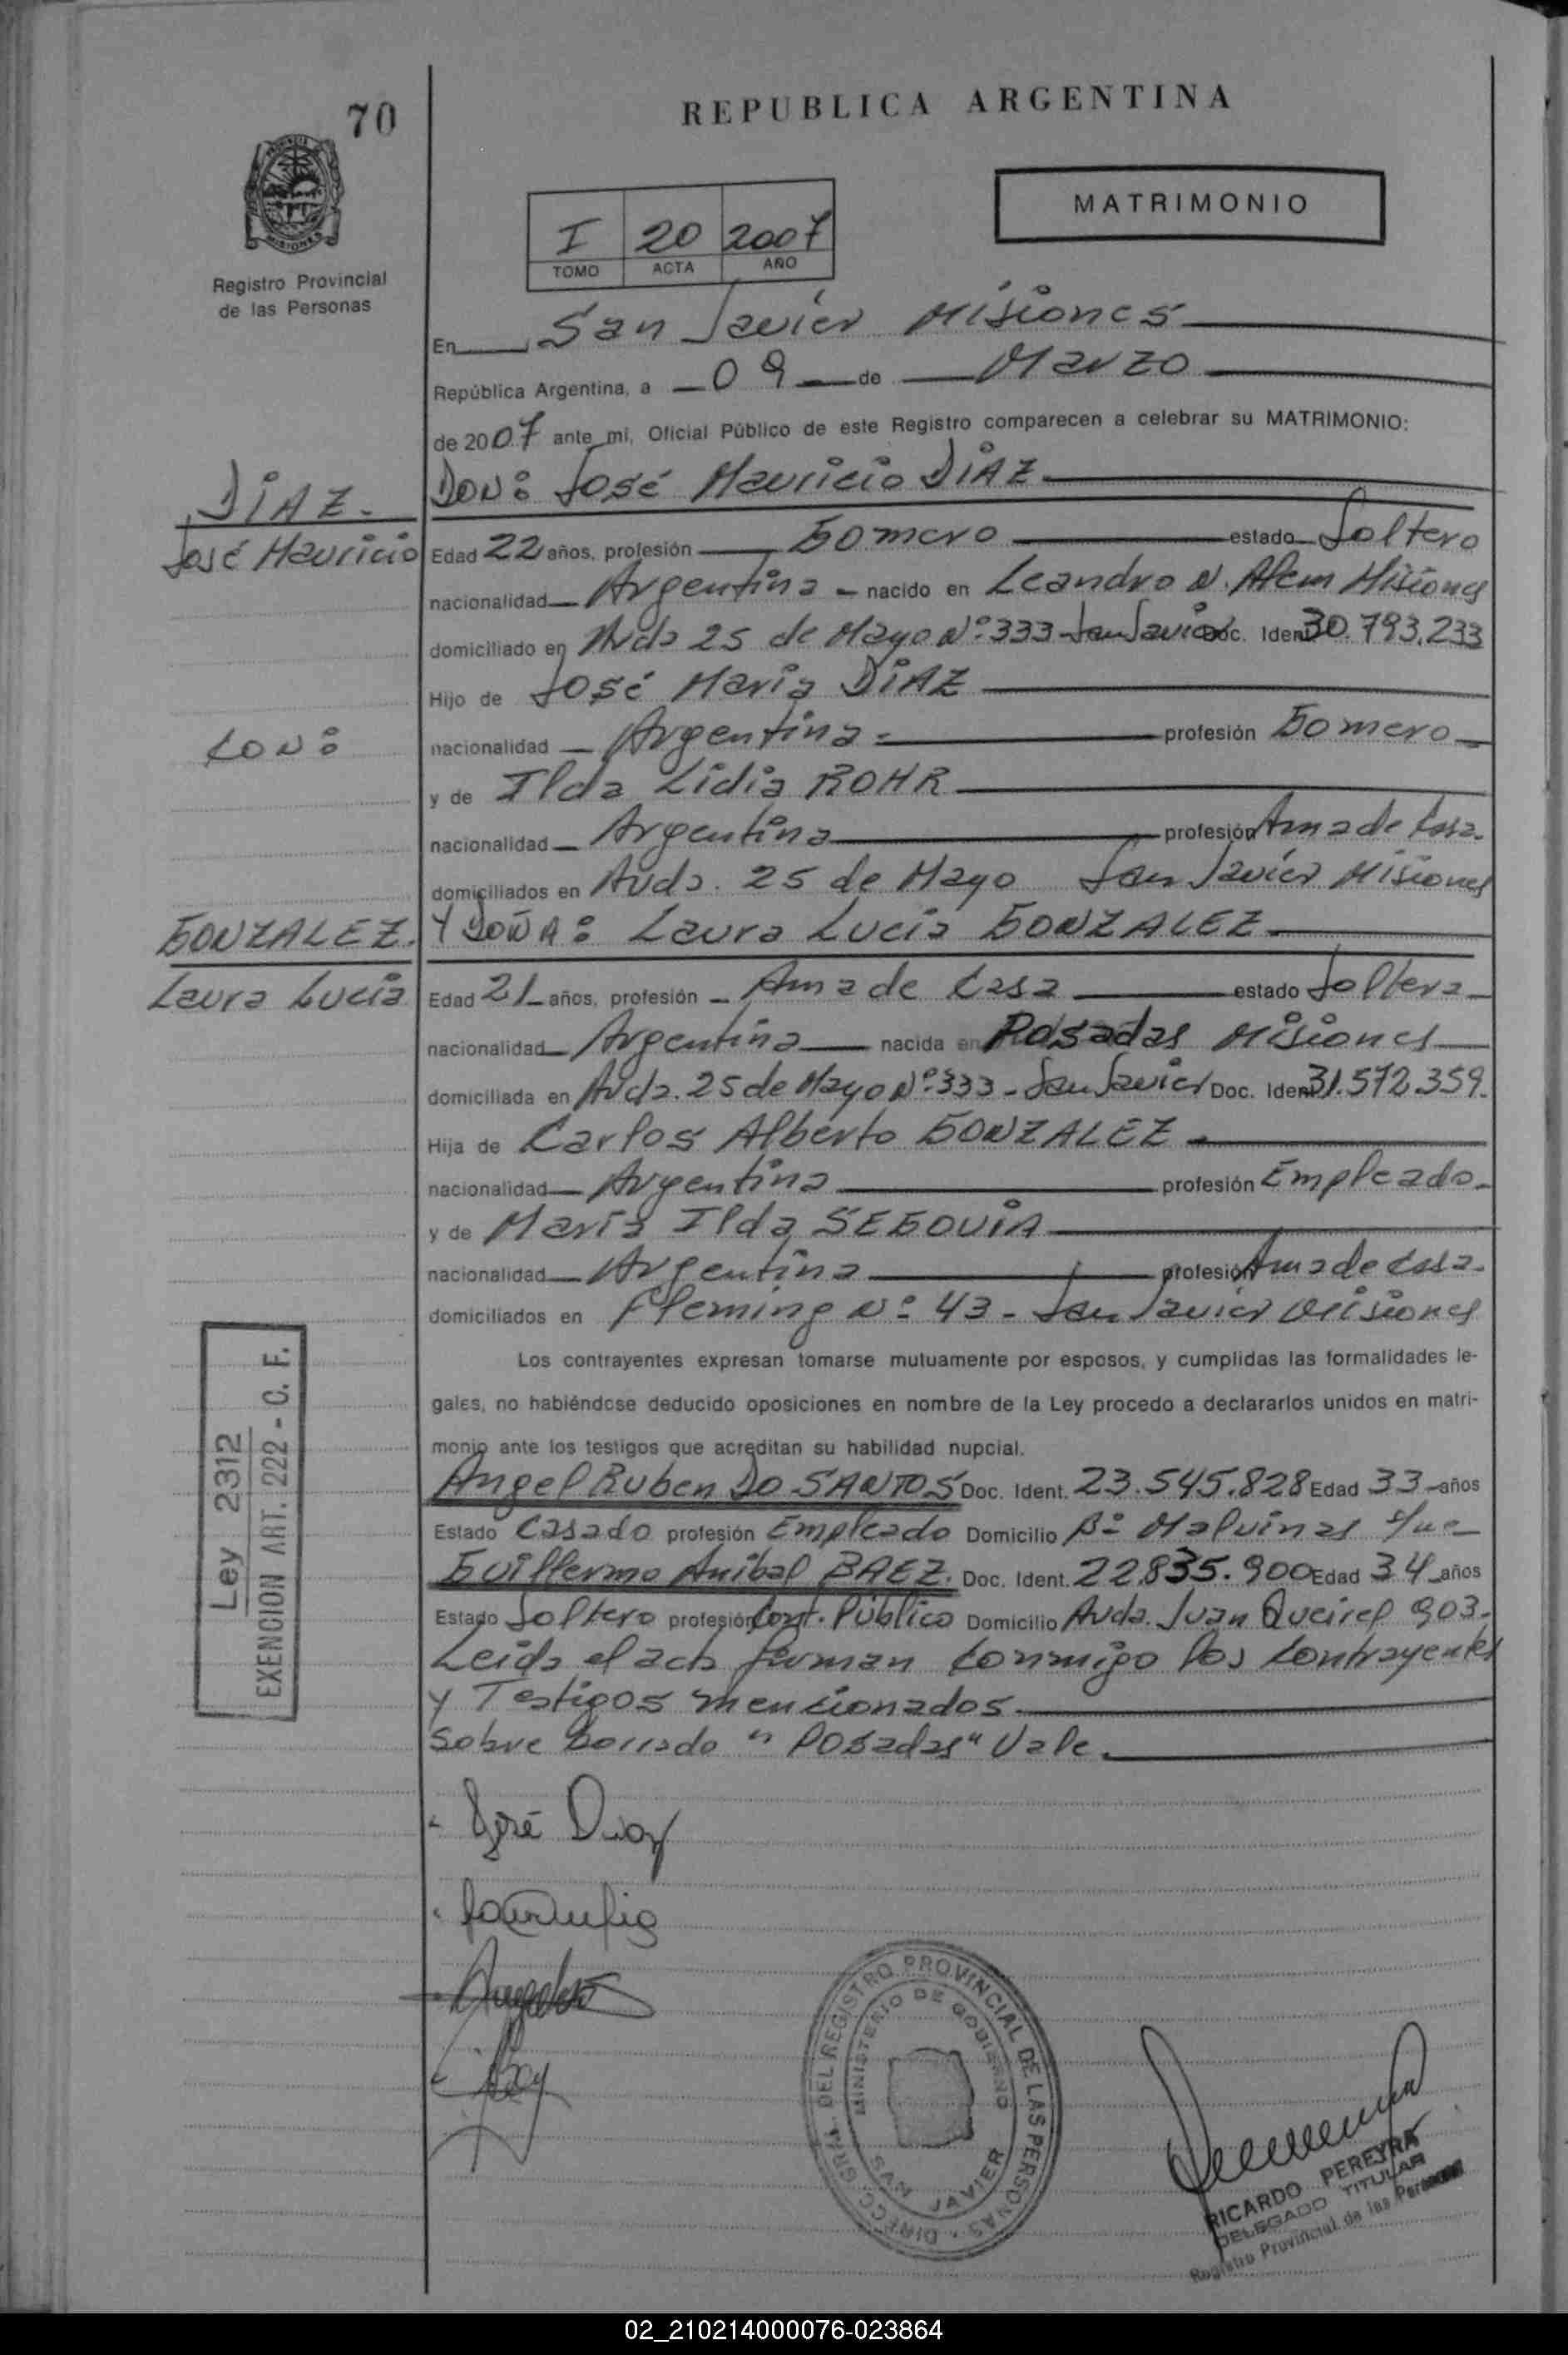 70
REPUBLICA ARGENTINA
MATRIMONIO
I 20 2007
TOMO ACTA AÑO
MISIONES
Registro Provincial
de las Personas
En San Javier Misiones
República Argentina, a 09 de Marzo
de 2007 ante mi, Oficial Público de este Registro comparecen a celebrar su MATRIMONIO:
DIAZ.
DON: José Mauricio DIAZ
José Mauricio
Edad 22 años, profesión Gomero estado Soltero
nacionalidad Argentina - nacido en Leandro N. Alem Misiones
domiciliado en Avda 25 de Mayo Nº 333 - San Javier Doc. Ident. 30.793.233
Hijo de José Maria DIAZ
CON:
nacionalidad Argentina profesión Gomero
y de Ilda Lidia ROHR
nacionalidad Argentina profesión Ama de Casa.
domiciliados en Avda. 25 de Mayo San Javier Misiones
GONZALEZ.
Y DOÑA: Laura Lucia GONZALEZ
Laura Lucia
Edad 21 años, profesión Ama de Casa estado Soltera
nacionalidad Argentina nacida en Posadas Misiones
domiciliada en Avda. 25 de Mayo Nº 333 - San Javier Doc. Ident. 31.572.359.
Hija de Carlos Alberto GONZALEZ
nacionalidad Argentina profesión Empleado
y de Maria Ilda SEGOVIA
nacionalidad Argentina profesión Ama de Casa.
domiciliados en Fleming Nº 43 - San Javier Misiones
Los contrayentes expresan tomarse mutuamente por esposos, y cumplidas las formalidades le-
gales, no habiéndose deducido oposiciones en nombre de la Ley procedo a declararlos unidos en matri-
monio ante los testigos que acreditan su habilidad nupcial.
Ley 2312
EXENCION ART. 222 - C. F.
Angel Ruben DO SANTOS Doc. Ident. 23.545.828 Edad 33 años
Estado Casado profesión Empleado Domicilio Bº Malvinas
Guillermo Anibal BAEZ. Doc. Ident. 22.835.900 Edad 34 años
Estado Soltero profesión Cont. Público Domicilio Avda. Juan Queirel 903.
Leida el acta firman conmigo los contrayentes
y Testigos mencionados.
Sobre borrado "Posadas" Vale.
José Diaz
DIRECC. GRAL. DEL REGISTRO PROVINCIAL DE LAS PERSONAS
MINISTERIO DE GOBIERNO
SAN JAVIER
RICARDO PEREYRA
DELEGADO TITULAR
Registro Provincial de las Personas
02_210214000076-023864